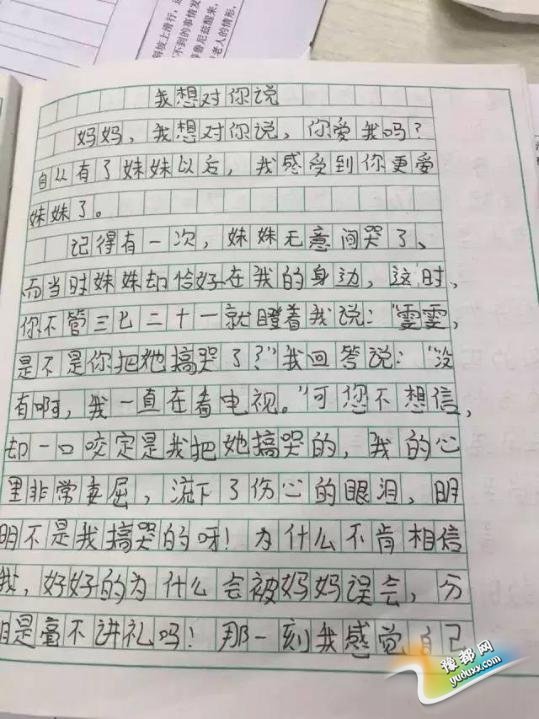 不到的事情发
老人的情形,
我想对你说
妈妈,我想对你说,你爱我吗?
自从有了妹妹以后,我感受到你更爱
妹妹了。
记得有一次,妹妹无意间哭了、
而当时妹妹却恰好在我的身边,这时,
你不管三七二十一就瞪着我说:“雯雯,
是不是你把她搞哭了?”我回答说:“没
有啊,我一直在看电视。”可您不想信,
却一口咬定是我把她搞哭的,我的心
里非常委屈,流下了伤心的眼泪,明
明不是我搞哭的呀!为什么不肯相信
我,好好的为什么会被妈妈误会,分
明是毫不讲礼吗!那一刻我感觉自己
豫都网
yuduxx.com